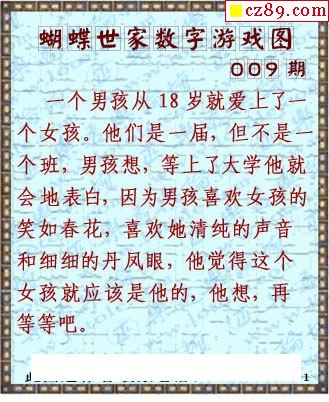 cz89.com
蝴蝶世家数字游戏图
009期
一个男孩从18岁就爱上了一
个女孩。他们是一届，但不是一
个班，男孩想，等上了大学他就
会地表白，因为男孩喜欢女孩的
笑如春花，喜欢她清纯的声音
和细细的丹凤眼，他觉得这个
女孩就应该是他的，他想，再
等等吧。